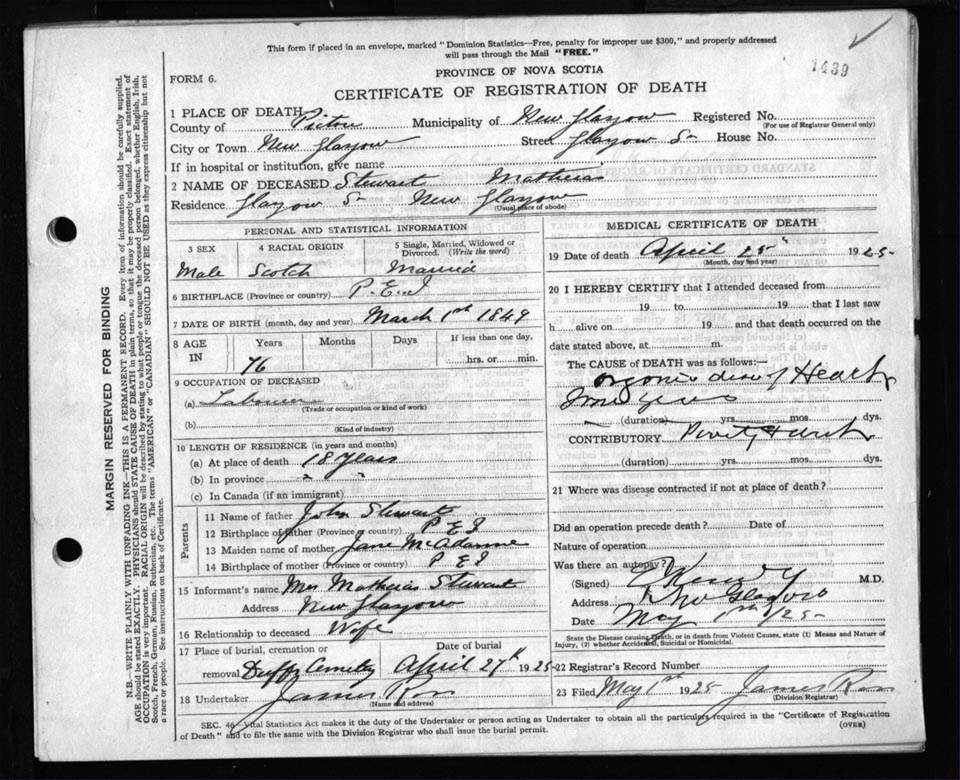 This form if placed in an envelope, marked "Dominion Statistics—Free, penalty for improper use $300," and properly addressed
will pass through the Mail "FREE."
1439
FORM 6.
PROVINCE OF NOVA SCOTIA
CERTIFICATE OF REGISTRATION OF DEATH
1 PLACE OF DEATH
County of Pictou Municipality of New Glasgow Registered No.
(For use of Registrar General only)
City or Town New Glasgow Street Glasgow St House No.
If in hospital or institution, give name
2 NAME OF DECEASED Stewart Matheias
Residence Glasgow St New Glasgow
(Usual place of abode)
PERSONAL AND STATISTICAL INFORMATION
3 SEX 4 RACIAL ORIGIN 5 Single, Married, Widowed or
Divorced. (Write the word)
Male Scotch Married
6 BIRTHPLACE (Province or country) P.E.I
7 DATE OF BIRTH (month, day and year) March 1st 1849
8 AGE IN Years Months Days If less than one day,
76 hrs. or min.
9 OCCUPATION OF DECEASED
(a) Labourer
(Trade or occupation or kind of work)
(b)
(Kind of industry)
10 LENGTH OF RESIDENCE (in years and months)
(a) At place of death 18 Years
(b) In province " "
(c) In Canada (if an immigrant)
Parents
11 Name of father John Stewart
12 Birthplace of father (Province or country) P E I
13 Maiden name of mother Jane McAdame
14 Birthplace of mother (Province or country) P E I
15 Informant's name Mrs Matheias Stewart
Address New Glasgow
16 Relationship to deceased Wife
17 Place of burial, cremation or Date of burial
removal Duffy Cemetery April 27th 1925
18 Undertaker James Ross
(Name and address)
MEDICAL CERTIFICATE OF DEATH
19 Date of death April 25th 1925
(Month, day and year)
20 I HEREBY CERTIFY that I attended deceased from
19 to 19 that I last saw
h alive on 19 and that death occurred on
the date stated above, at m.
The CAUSE OF DEATH was as follows:—
organic dis of Heart
years
(duration) yrs. mos. dys.
CONTRIBUTORY
(duration) yrs. mos. dys.
21 Where was disease contracted if not at place of death?
Did an operation precede death? Date of
Nature of operation
Was there an autopsy?
(Signed) M.D.
Address New Glasgow
Date May 1st 1925
State the Disease causing Death, or in death from Violent Causes, state (1) Means and Nature of
Injury, (2) whether Accidental, Suicidal or Homicidal.
22 Registrar's Record Number
23 Filed May 1st 1925 James Ross
(Division Registrar)
SEC. 46—Vital Statistics Act makes it the duty of the Undertaker or person acting as Undertaker to obtain all the particulars required in the "Certificate of Registration
of Death" and to file the same with the Division Registrar who shall issue the burial permit.
(OVER)
MARGIN RESERVED FOR BINDING
N.B.—WRITE PLAINLY WITH UNFADING INK—THIS IS A PERMANENT RECORD. Every item of information should be carefully supplied.
AGE should be stated EXACTLY. PHYSICIANS should STATE CAUSE OF DEATH in plain terms, so that it may be properly classified. Exact statement of
OCCUPATION is very important. RACIAL ORIGIN will be described by stating to what people or tongue the deceased person belonged, whether English, Irish,
Scotch, French, German, Russian, Ruthenian, etc. The terms "AMERICAN" or "CANADIAN" SHOULD NOT BE USED as they express citizenship but not
a race or people. See instructions on back of Certificate.